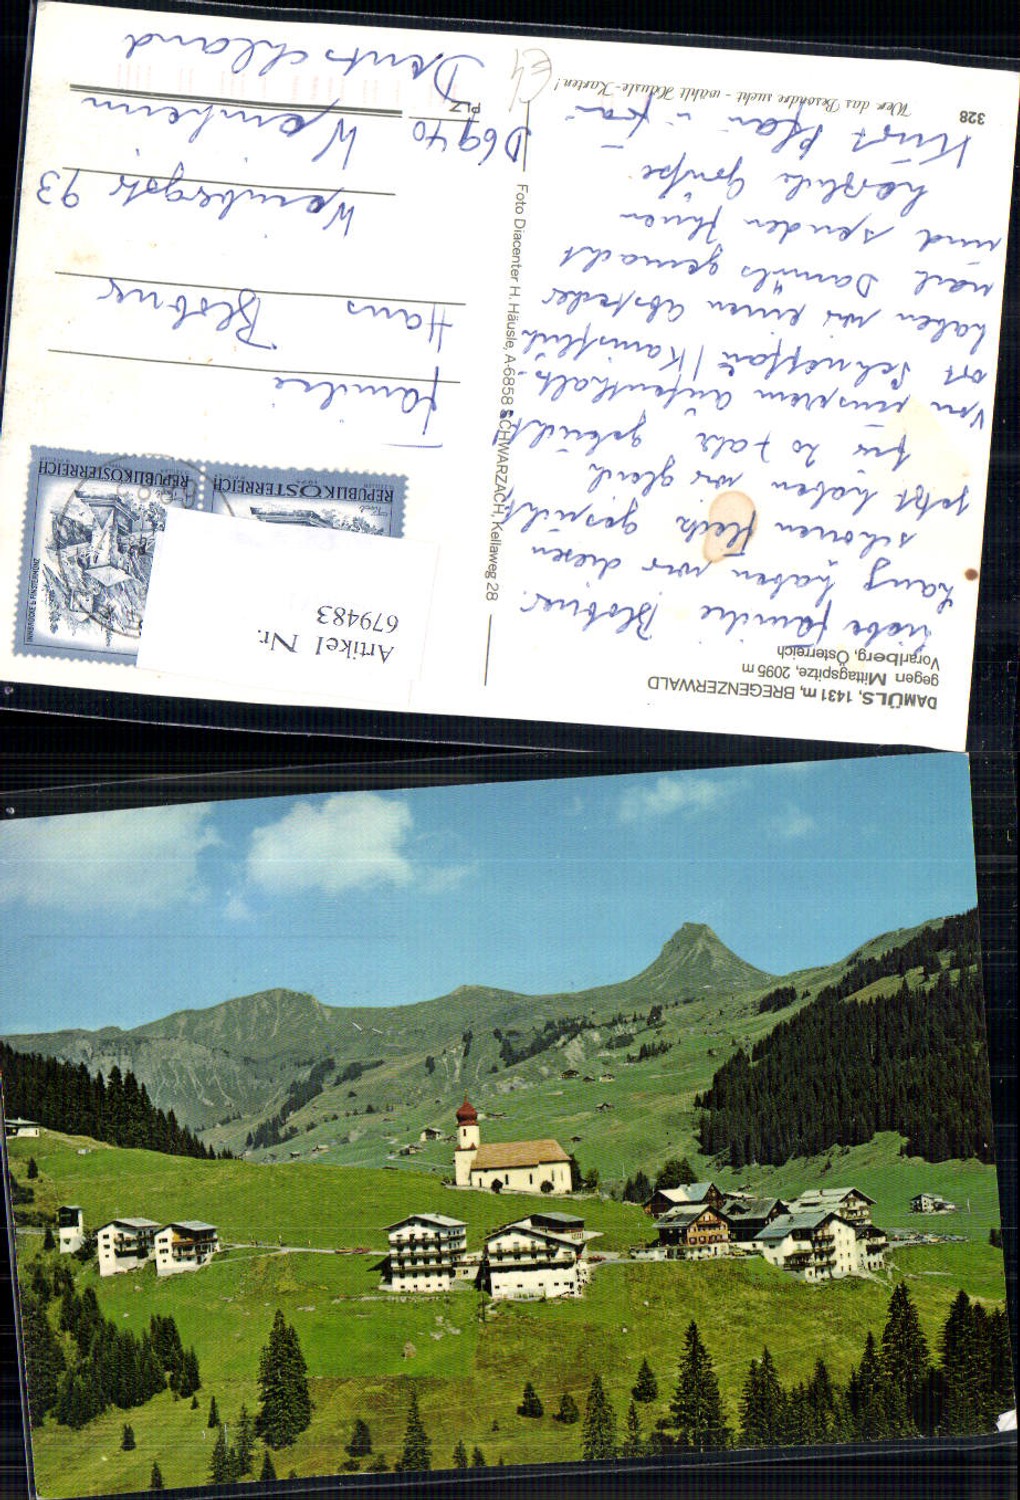 DAMÜLS, 1431 m, BREGENZERWALD
gegen Mittagspitze, 2095 m
Vorarlberg, Österreich
Liebe Familie Blobner.
Lang haben wir diesen
schönen Fleck gesucht
jetzt haben wir gleich
für 20 Jahr gebucht!
Von unserem aufenthalts-
ort Schnepfau / Kanisfluh
haben wir einen abstecher
nach Damüls gemacht
und senden Ihnen
herzliche Grüße.
Kurt
328
Wer das Besondre sucht - wählt Häusle-Karten!
Foto Diacenter H. Häusle, A-6858 SCHWARZACH, Kellaweg 28
REPUBLIK ÖSTERREICH
REPUBLIK ÖSTERREICH
INNBRÜCKE b. FINSTERMÜNZ
Artikel Nr.
679483
Familie
Hans Blobner
93
PLZ
D 6940
Deutschland